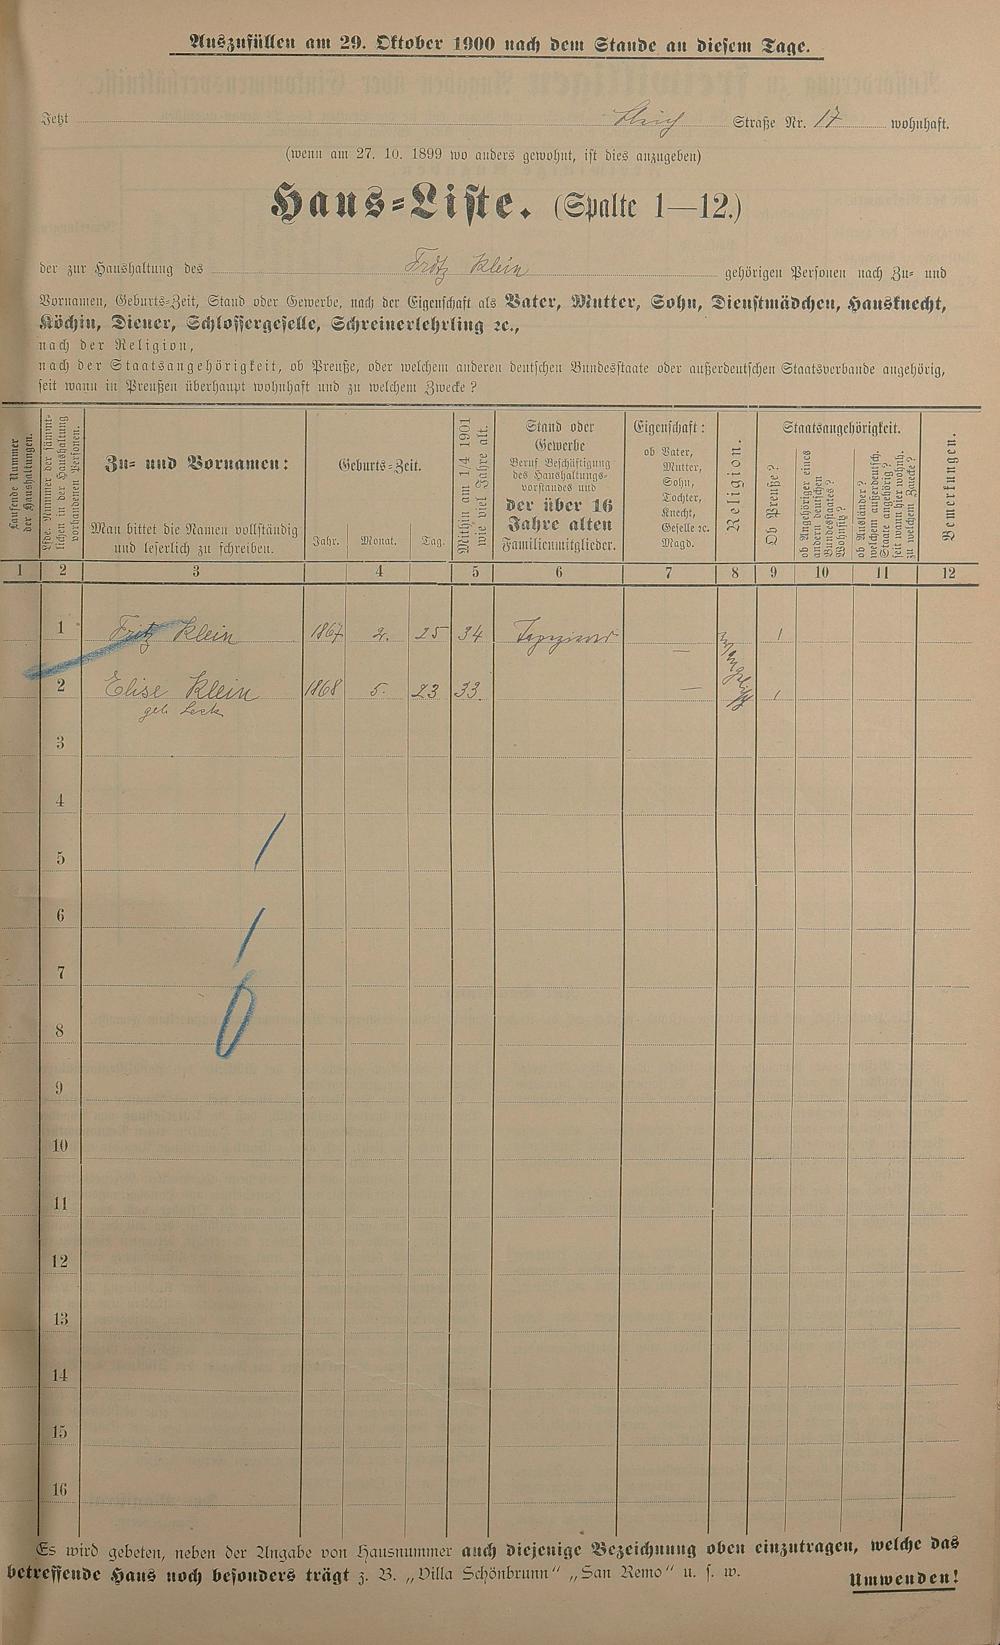 Auszufüllen am 29. Oktober 1900 nach dem Stande an diesem Tage.
Jetzt Straße Nr. 17 wohnhaft.
(wenn am 27. 10. 1899 wo anders gewohnt, ist dies anzugeben)
Haus-Liste. (Spalte 1—12.)
der zur Haushaltung des Fritz Klein gehörigen Personen nach Zu- und
Vornamen, Geburts-Zeit, Stand oder Gewerbe, nach der Eigenschaft als Vater, Mutter, Sohn, Dienstmädchen, Hausknecht,
Köchin, Diener, Schlossergeselle, Schreinerlehrling ꝛc.,
nach der Religion,
nach der Staatsangehörigkeit, ob Preuße, oder welchem anderen deutschen Bundesstaate oder außerdeutschen Staatsverbande angehörig,
seit wann in Preußen überhaupt wohnhaft und zu welchem Zwecke?
Laufende Nummer
der Haushaltungen.
Lfde. Nummer der sämmt-
lichen in der Haushaltung
vorhandenen Personen.
Zu- und Vornamen:
Man bittet die Namen vollständig
und leserlich zu schreiben.
Geburts-Zeit.
Jahr. Monat. Tag.
Mithin am 1/4 1901
wie viel Jahre alt.
Stand oder
Gewerbe
Beruf Beschäftigung
des Haushaltungs-
vorstandes und
der über 16
Jahre alten
Familienmitglieder.
Eigenschaft:
ob Vater,
Mutter,
Sohn,
Tochter,
Knecht,
Geselle ꝛc.
Magd.
Religion.
Staatsangehörigkeit.
Ob Preuße?
ob Angehöriger eines
andern deutschen
Bundesstaates?
Wohnsitz?
ob Ausländer?
welchem außerdeutsch.
Staate angehörig?
seit wann hier wohnh.
zu welchem Zwecke?
Bemerkungen.
1 2 3 4 5 6 7 8 9 10 11 12
1 Fritz Klein 1867 2. 25 34 Tapezierer — evangelisch 1
2 Elise Klein 1868 5. 23 33 — 1
geb. Leck
3
4
5
6
7
8
9
10
11
12
13
14
15
16
Es wird gebeten, neben der Angabe von Hausnummer auch diejenige Bezeichnung oben einzutragen, welche das
betreffende Haus noch besonders trägt z. B. „Villa Schönbrunn" „San Remo" u. s. w.
Umwenden!